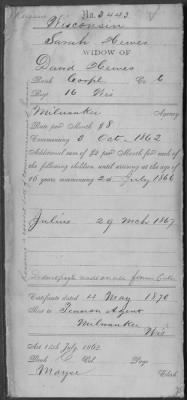 No. 3443
Wisconsin
Sarah Hewes
WIDOW OF
David Hewes
Rank Corpl Co. C
Reg. 16 Wis
Milwaukee Agency
Rate per Month $8
Commencing 3 Oct. 1862
Additional sum of $2 per Month for each of
the following children, until arriving at the age of
16 years commencing 25 July 1866
Julius 29 Mch 1867
Certificate dated 4 May 1870
Sent to Pension Agent
Milwaukee
Wis
Act 14th July 1862
Book Vol. Page
Clerk